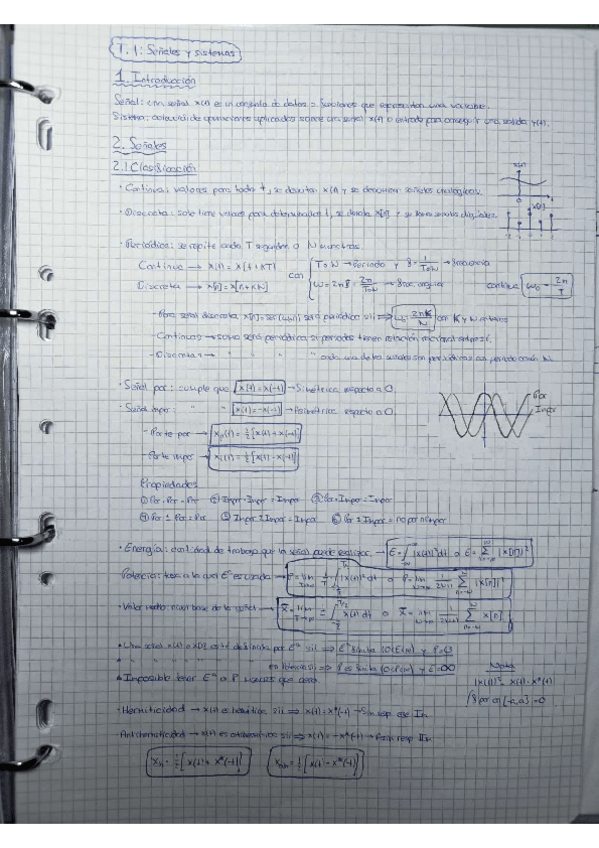 T.1: Señales y sistemas
1. Introducción
Señal: una señal x(t) es un conjunto de datos o funciones que representan una variable.
Sistema: colección de operaciones aplicadas sobre una señal x(t) o entrada para conseguir una salida y(t).
2. Señales
2.1 Clasificación
· Continua: valores para todo t, se denotan x(t) y se denominan señales analógicas.
x(t)
· Discreta: solo tiene valores para determinados t, se denota x[n] y se llaman señales digitales.
x[n]
· Periódica: se repite cada T segundos o N muestras.
Continua → x(t) = x(t+KT)
Discreta → x[n] = x[n+KN]
con
T o N → Periodo y f = 1/T o N → frecuencia
ω = 2πf = 2π/T o N → frec. angular
continua ω₀ = 2π/T
- Para señal discreta será periódica sii ⇒ ω₀ = 2πK/N con K y N enteros
- Continuas → suma será periódica si periodos tienen relación racional entre sí.
- Discretas → " " "
· Señal par: cumple que x(t) = x(-t) → Simétrica respecto a 0.
· Señal impar: " " x(t) = -x(-t) → Asimétrica respecto a 0.
Par
Impar
- Parte par → xp(t) = ½[x(t) + x(-t)]
- Parte impar → xi(t) = ½[x(t) - x(-t)]
Propiedades
① Par · Par = Par ② Impar · Impar = Impar ③ Par · Impar = Impar
④ Par ± Par = Par ⑤ Impar ± Impar = Impar ⑥ Par ± Impar = no par ni impar
· Energía: cantidad de trabajo que la señal puede realizar. → E = ∫|x(t)|² dt o E = Σ|x[n]|²
Potencia: tasa a la que E es usada → P = lim 1/T ∫|x(t)|² dt o P = lim 1/2N+1 Σ|x[n]|²
· Valor medio: nivel base de la señal → x̄ = lim 1/T ∫ x(t) dt o x̄ = lim 1/2N+1 Σ x[n]
· Una señal x(t) o x[n] está definida por Eª sii ⇒ Eª finita (0<E<∞) y P=0
" " " " " en potencia sii ⇒ P es finita (0<P<∞) y E=∞
· Imposible tener Eª o P menores que cero.
Nota
|x(t)|² = x(t) · x*(t)
· Hermiticidad → x(t) es hermítica sii ⇒ x(t) = x*(-t) → Sim resp eje
· Antihermiticidad → x(t) es antihermítica sii ⇒ x(t) = -x*(-t) →
xh = ½[x(t) + x*(-t)]
xah = ½[x(t) - x*(-t)]